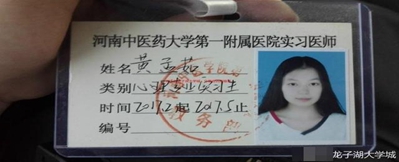 河南中医药大学第一附属医院实习医师
姓名 黄孟茹
类别 心理专业实习生
时间 2017.2起2017.5止
编号
教务部
龙子湖大学城